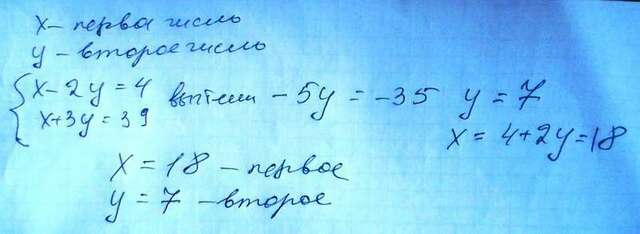 x – первое число
y – второе число
{ x – 2y = 4
x + 3y = 39
вычтем – 5y = – 35 y = 7
x = 4 + 2y = 18
x = 18 – первое
y = 7 – второе